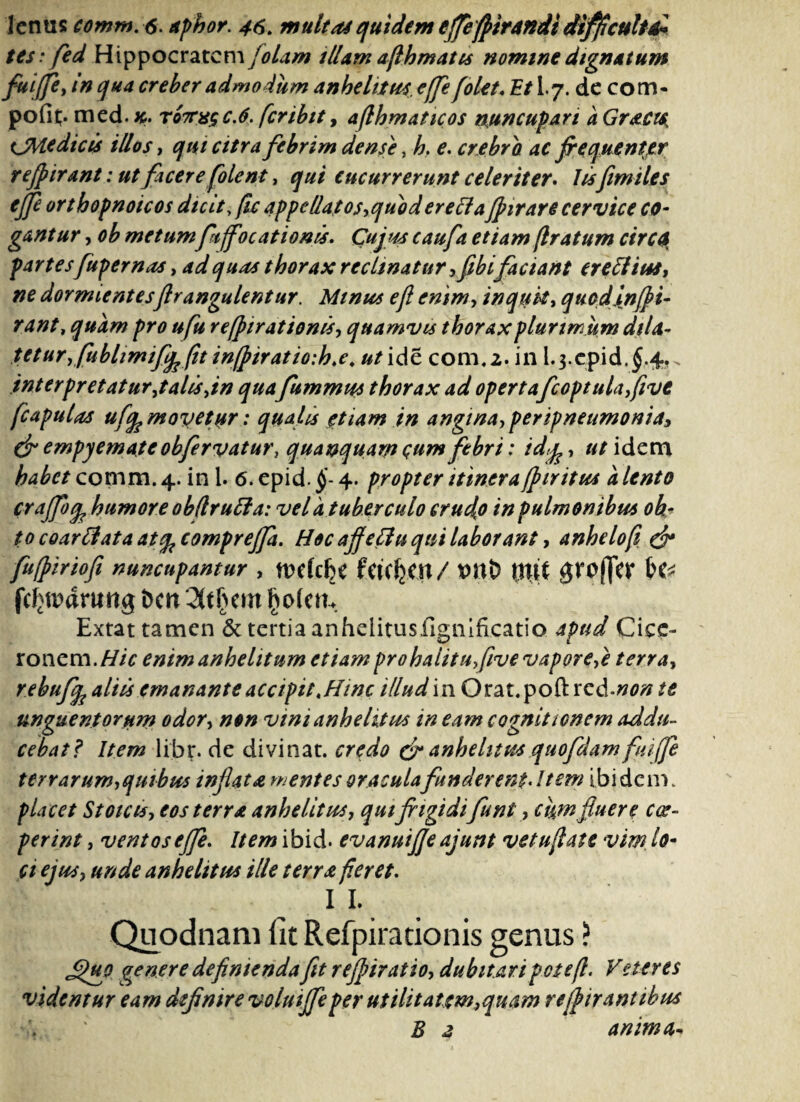 lenus comm. 6. aphor. 46. multas quidem esse spirandi difficulta-
tes: sed Hippocratem solam illam asthmatis nomine dignatum
fuisse, in qua creber admodum anhelitus esse solet. Et l. 7. de com-
posit. med. κ. τόπȣς c. 6. scribit, asthmaticos nuncupari à Græcis
Medicis illos, qui citra febrim dense, h. e. crebro ac frequenter
respirant: ut facere solent, qui cucurrerunt celeriter. Iis similes
esse orthopnoicos dicit, sic appellatos, quod erecta spirare cervice co-
gantur, ob metum suffocationis. Cujus causa etiam stratum circa
partes supernas, ad quas thorax reclinatur, sibi faciant erectius,
ne dormientes strangulentur. Minus est enim, inquit, quod inspi-
rant, quàm pro usu respirationis, quamvis thorax plurimùm dila-
tetur, sublimisq́; fit inspiratio: h.e. ut idē com. 2. in l. 3. epid. §. 4.
interpretatur, talis, in qua summus thorax ad operta scoptula, sive
scapulas usq́; movetur: qualis etiam in angina, peripneumonia,
& empyemate observatur, quanquam cum febri: idq́;, ut idem
habet comm. 4. in l. 6. epid. §. 4. propter itinera spiritus à lento
crassoq́; humore obstructa: vel à tuberculo crudo in pulmonibus ob-
to coarctata atq́; compressa. Hoc affectu qui laborant, anhelosi &
suspiriosi nuncupantur, welche keichen / vnd mit grosser be-
schwärung den Athem holen.
Extat tamen & tertia anhelitus significatio apud Cice-
ronem. Hic enim anhelitum etiam pro halitu, sive vapore, è terra,
rebusq́; aliis emanante accipit. Hinc illud in Orat. post red. non te
unguentorum odor, non vini anhelitus in eam cognitionem addu-
cebat? Item libr. de divinat. credo & anhelitus quosdam fuisse
terrarum, quibus inflatæ mentes oracula funderent. Item ibidem.
placet Stoicis, eos terræ anhelitus, qui frigidi sunt, cùm fluere cœ-
perint, ventos esse. Item ibid. evanuisse ajunt vetustate vim lo-
ci ejus, unde anhelitus ille terræ fieret.
II.
Quodnam sit Respirationis genus?
Quo genere definienda sit respiratio, dubitari potest. Veteres
videntur eam definire voluisse per utilitatem, quam respirantibus
B 2 anima-